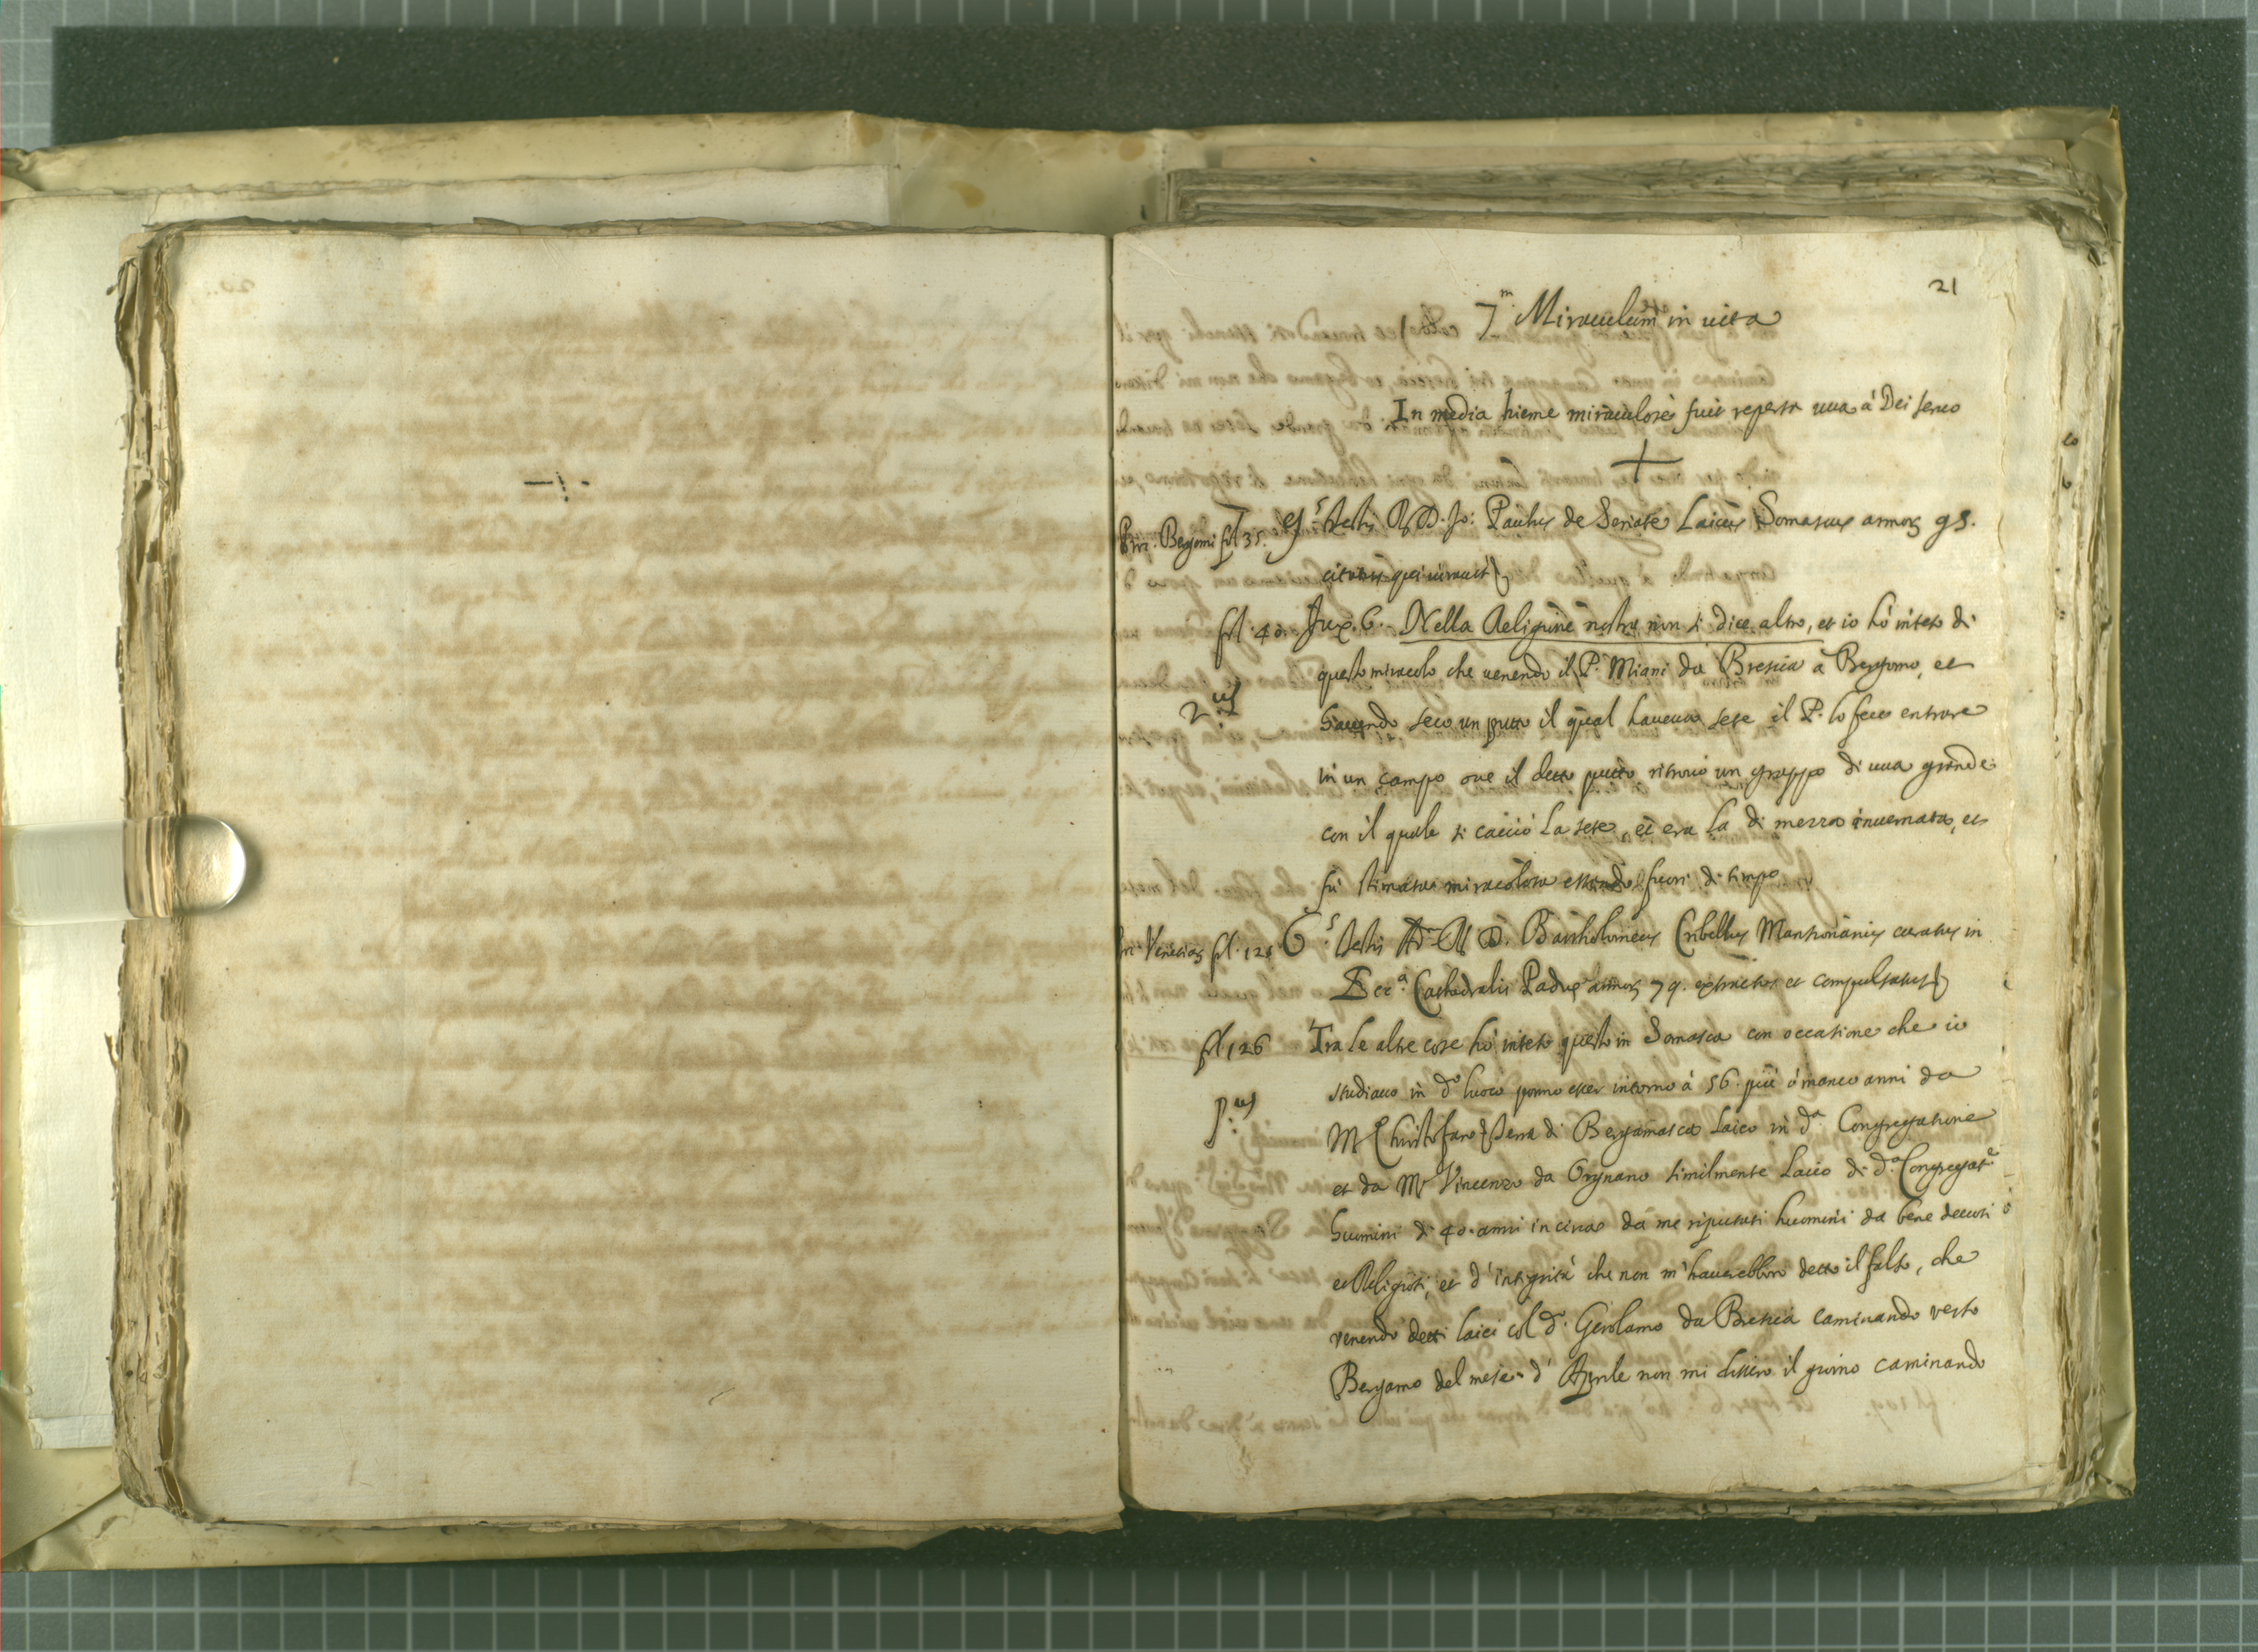 21
7.m Miraculum in uita
In media hieme miraculosè fuit reperta uua à Dei seruo
Proc. Bergomi fol 35. 9.s testis R. D. Jo: Paulus de Seriate Laicus Somascus annor. 95.
citatus qui iurauit
fol. 40 Jux. 6. Nella Religione nostra non si dice altro, et io hò inteso di
questo miracolo che uenendo il P. Miani da Brescia à Bergomo, et
2.us hauendo seco un putto il qual haueua sete il P. lo fece entrare
in un campo oue il detto putto ritrouò un grappo di uua grande
con il quale si cacciò la sete, et era la di mezza inuernata, et
fù stimata miracolosa essendo fuori di tempo
Proc. Venetiar. fol. 125 6.s testis Ad. R. D. Bartholomeus Cribellus Mansionarius curatus in
Ecc.a Cathedralis Paduæ annor. 79. extractus et compulsatus
fol 126 Tra le altre cose hò inteso questo in Somasca con occasione che io
studiauo in d.o luoco ponno esser intorno à 56. più ò manco anni da
p.us M. Christofaro Serra di Bergamasca Laico in d.a Congregatione
et da M. Vincenzo da Orgnano similmente Laico di d.a Congregat.e
huomini di 40. anni in circa da me riputati huomini da bene deuoti
et Religiosi, et d'integrità che non m'hauerebbero detto il falso, che
venendo detti laici col d.o Gerolamo da Brescia caminando verso
Bergamo del mese d'Aprile non mi dissero il giorno caminando